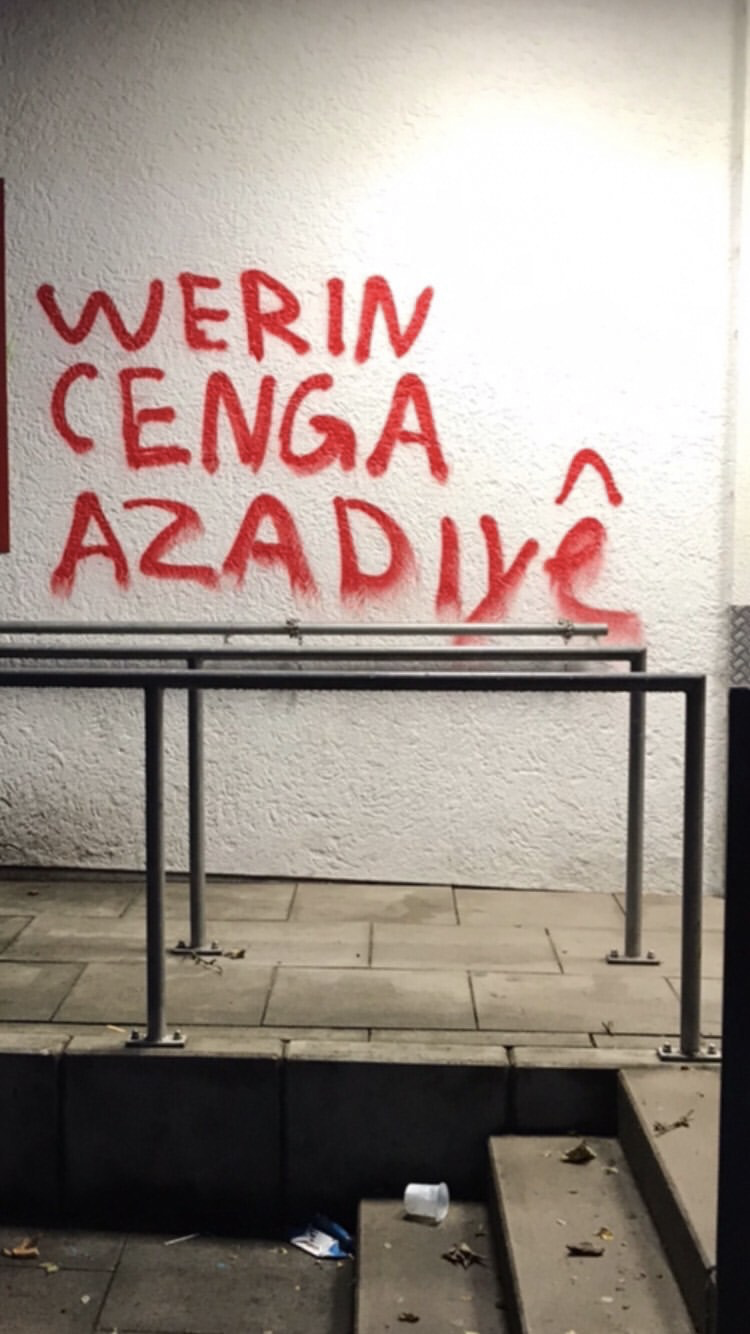 WERIN
CENGA
AZADIYÊ